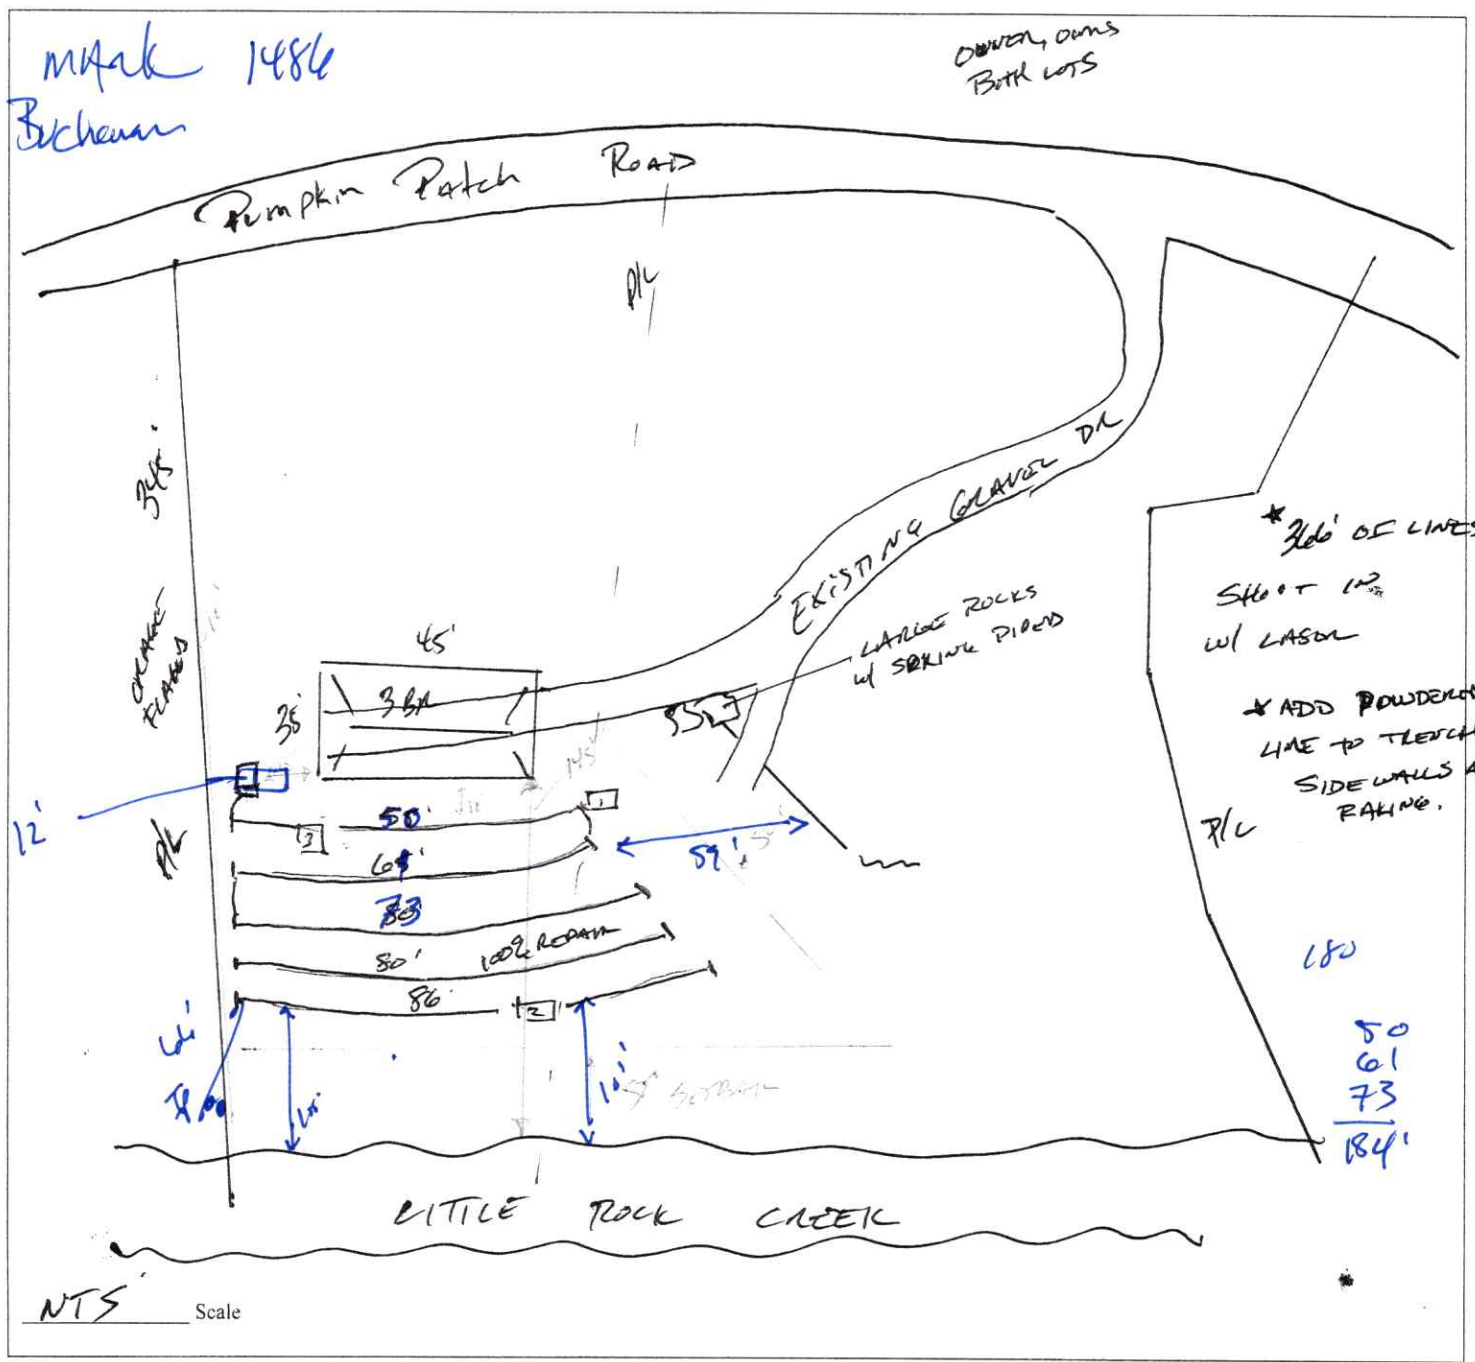 MARK 1486
Buchanan
OWNER, OWNS
BOTH LOTS
Pumpkin Patch ROAD
P/L
345'
ORANGE
FLAGES
EXISTING GRAVEL DR
LARGE ROCKS
w/ SPRING PIPED
45'
35'
3 BR
12'
P/L
50'
1
3
73
59'
80'
100% REPAIR
86'
2
* 366' OF LINES
SHOOT IN
W/ LASOR
* ADD POWDERED
LIME TO TRENCH
SIDEWALLS A
RAKING.
P/L
180
50
61
73
184'
LITTLE ROCK CREEK
NTS Scale